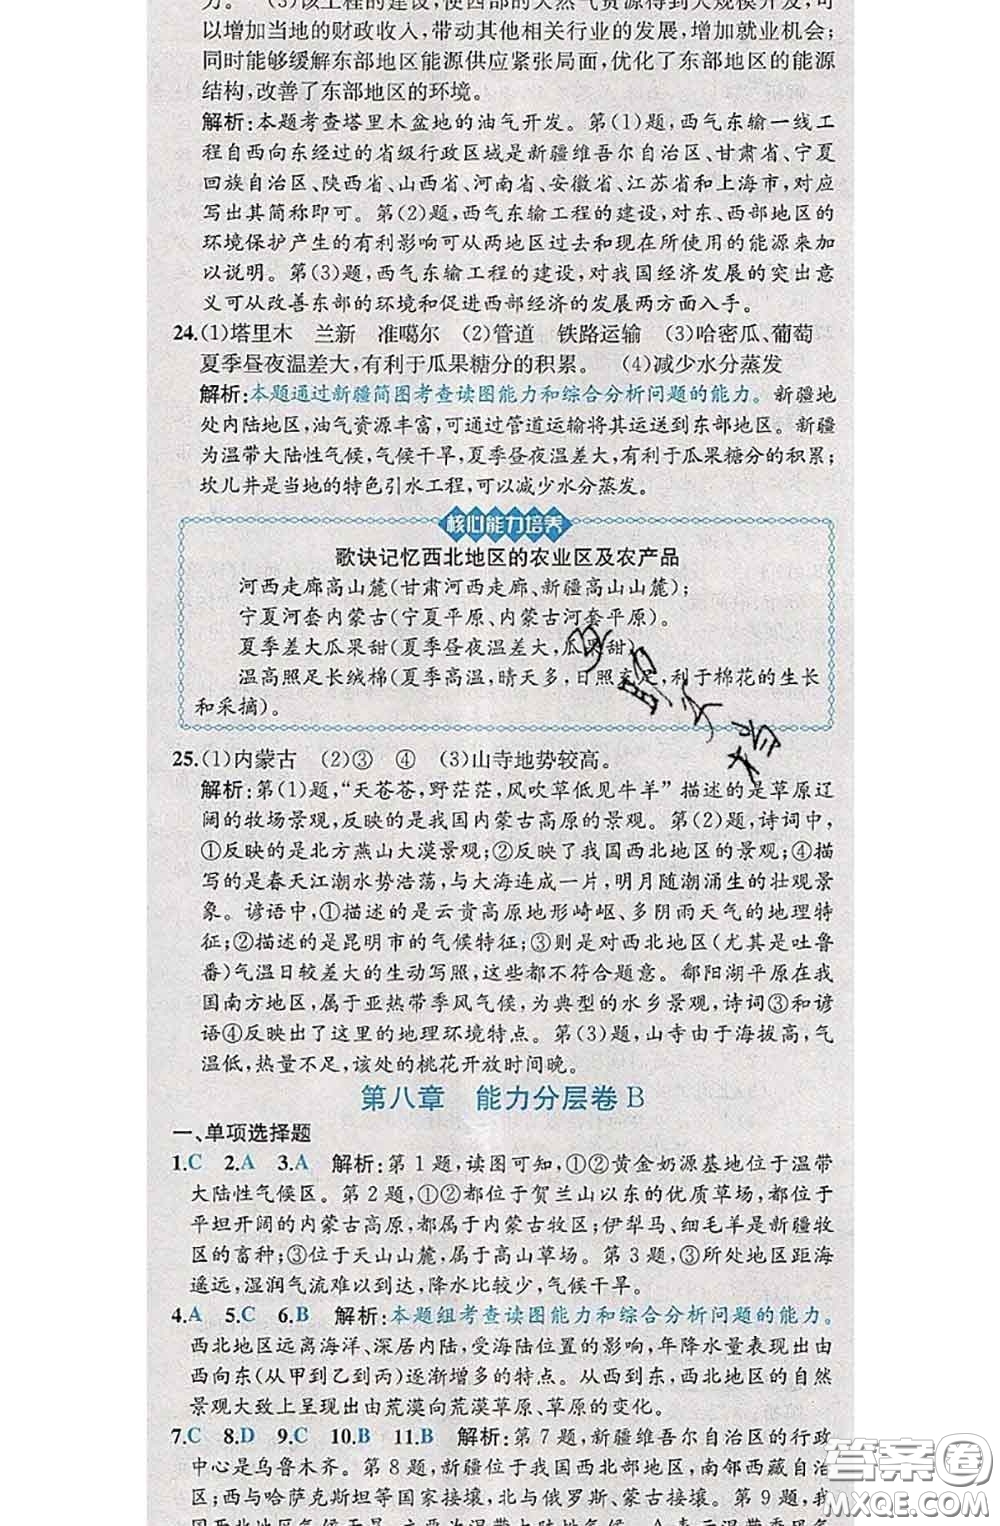 力。 (3)该工程的建设,使西部的天然气资源得到大规模开发,可
以增加当地的财政收入,带动其他相关行业的发展,增加就业机会;
同时能够缓解东部地区能源供应紧张局面,优化了东部地区的能源
结构,改善了东部地区的环境。
解析:本题考查塔里木盆地的油气开发。第(1)题,西气东输一线工
程自西向东经过的省级行政区域是新疆维吾尔自治区、甘肃省、宁夏
回族自治区、陕西省、山西省、河南省、安徽省、江苏省和上海市,对应
写出其简称即可。第(2)题,西气东输工程的建设,对东、西部地区的
环境保护产生的有利影响可从两地区过去和现在所使用的能源来加
以说明。第(3)题,西气东输工程的建设,对我国经济发展的突出意
义可从改善东部的环境和促进西部经济的发展两方面入手。
24.(1)塔里木 兰新 准噶尔 (2)管道 铁路运输 (3)哈密瓜、葡萄
夏季昼夜温差大,有利于瓜果糖分的积累。 (4)减少水分蒸发
解析:本题通过新疆简图考查读图能力和综合分析问题的能力。新疆地
处内陆地区,油气资源丰富,可通过管道运输将其运送到东部地区。新疆
为温带大陆性气候,气候干旱,夏季昼夜温差大,有利于瓜果糖分的积累;
坎儿井是当地的特色引水工程,可以减少水分蒸发。
核心能力培养
歌诀记忆西北地区的农业区及农产品
河西走廊高山麓(甘肃河西走廊、新疆高山山麓);
宁夏河套内蒙古(宁夏平原、内蒙古河套平原)。
夏季差大瓜果甜(夏季昼夜温差大,瓜果甜)
温高照足长绒棉(夏季高温,晴天多,日照充足,利于棉花的生长
和采摘)。
25.(1)内蒙古 (2)③ ④ (3)山寺地势较高。
解析:第(1)题,“天苍苍,野茫茫,风吹草低见牛羊”描述的是草原辽
阔的牧场景观,反映的是我国内蒙古高原的景观。第(2)题,诗词中,
①反映的是北方燕山大漠景观;②反映了我国西北地区的景观;④描
写的是春天江潮水势浩荡,与大海连成一片,明月随潮涌生的壮观景
象。谚语中,①描述的是云贵高原地形崎岖、多阴雨天气的地理特
征;②描述的是昆明市的气候特征;③则是对西北地区(尤其是吐鲁
番)气温日较差大的生动写照,这些都不符合题意。鄱阳湖平原在我
国南方地区,属于亚热带季风气候,为典型的水乡景观,诗词③和谚
语④反映出了这里的地理环境特点。第(3)题,山寺由于海拔高,气
温低,热量不足,该处的桃花开放时间晚。
第八章 能力分层卷B
一、单项选择题
1.C 2.A 3.A 解析:第1题,读图可知,①②黄金奶源基地位于温带
大陆性气候区。第2题,①②都位于贺兰山以东的优质草场,都位于
平坦开阔的内蒙古高原,都属于内蒙古牧区;伊犁马、细毛羊是新疆牧
区的畜种;③位于天山山麓,属于高山草场。第3题,③所处地区距海
遥远,湿润气流难以到达,降水比较少,气候干旱。
4.A 5.C 6.B 解析:本题组考查读图能力和综合分析问题的能力。
西北地区远离海洋、深居内陆,受海陆位置的影响,年降水量表现出由
西向东(从甲到乙到丙)逐渐增多的特点。从西到东,西北地区的自然
景观大致上呈现出由荒漠向荒漠草原、草原的变化。
7.C 8.D 9.C 10.B 11.B 解析:第7题,新疆维吾尔自治区的行政
中心是乌鲁木齐。第8题,新疆位于我国西北部地区,南邻西藏自治
区;西与哈萨克斯坦等国家接壤,北与俄罗斯、蒙古接壤。第9题,我
答案圈
MXQE.COM